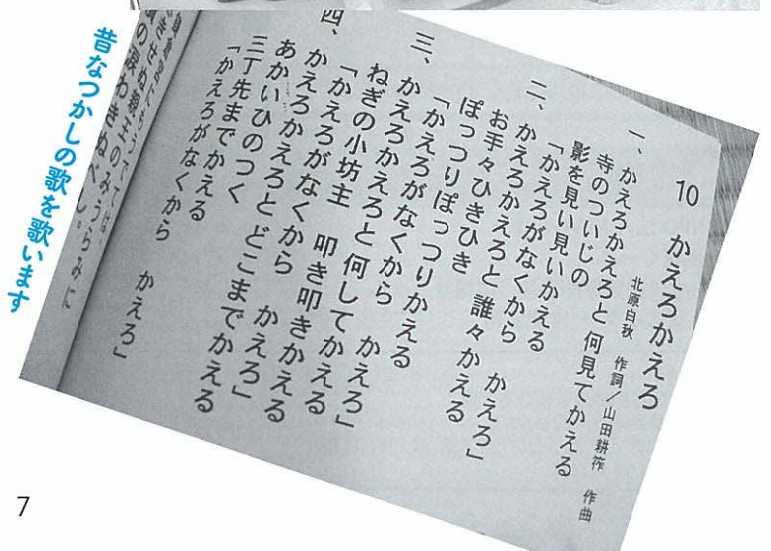 10 かえろかえろ
北原白秋 作詞/山田耕筰 作曲
一、かえろかえろと 何見てかえる
寺のついじの
影を見い見いかえる
「かえろがなくから かえろ」
二、かえろかえろと 誰々かえる
お手々ひきひき
ぽっつりぽっつりかえる
「かえろがなくから かえろ」
三、かえろかえろと何してかえる
ねぎの小坊主 叩き叩きかえる
「かえろがなくから かえろ」
四、かえろかえろと どこまでかえる
あかいひのつく
三丁先までかえる
「かえろがなくから かえろ」
きせぬ親王のみうらみに
の涙わきぬべし。
昔なつかしの歌を歌います
7